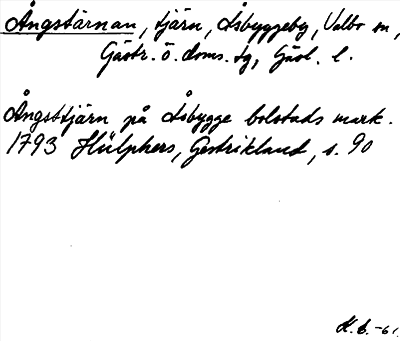 Ångstärnan, tjärn, Åsbyggeby, Valbo sn,
Gästr. ö. doms. tg, Gävl. l.
Ångsttjärn på Åsbygge bolstads mark.
1793 Hülphers, Gestrikland, s. 90